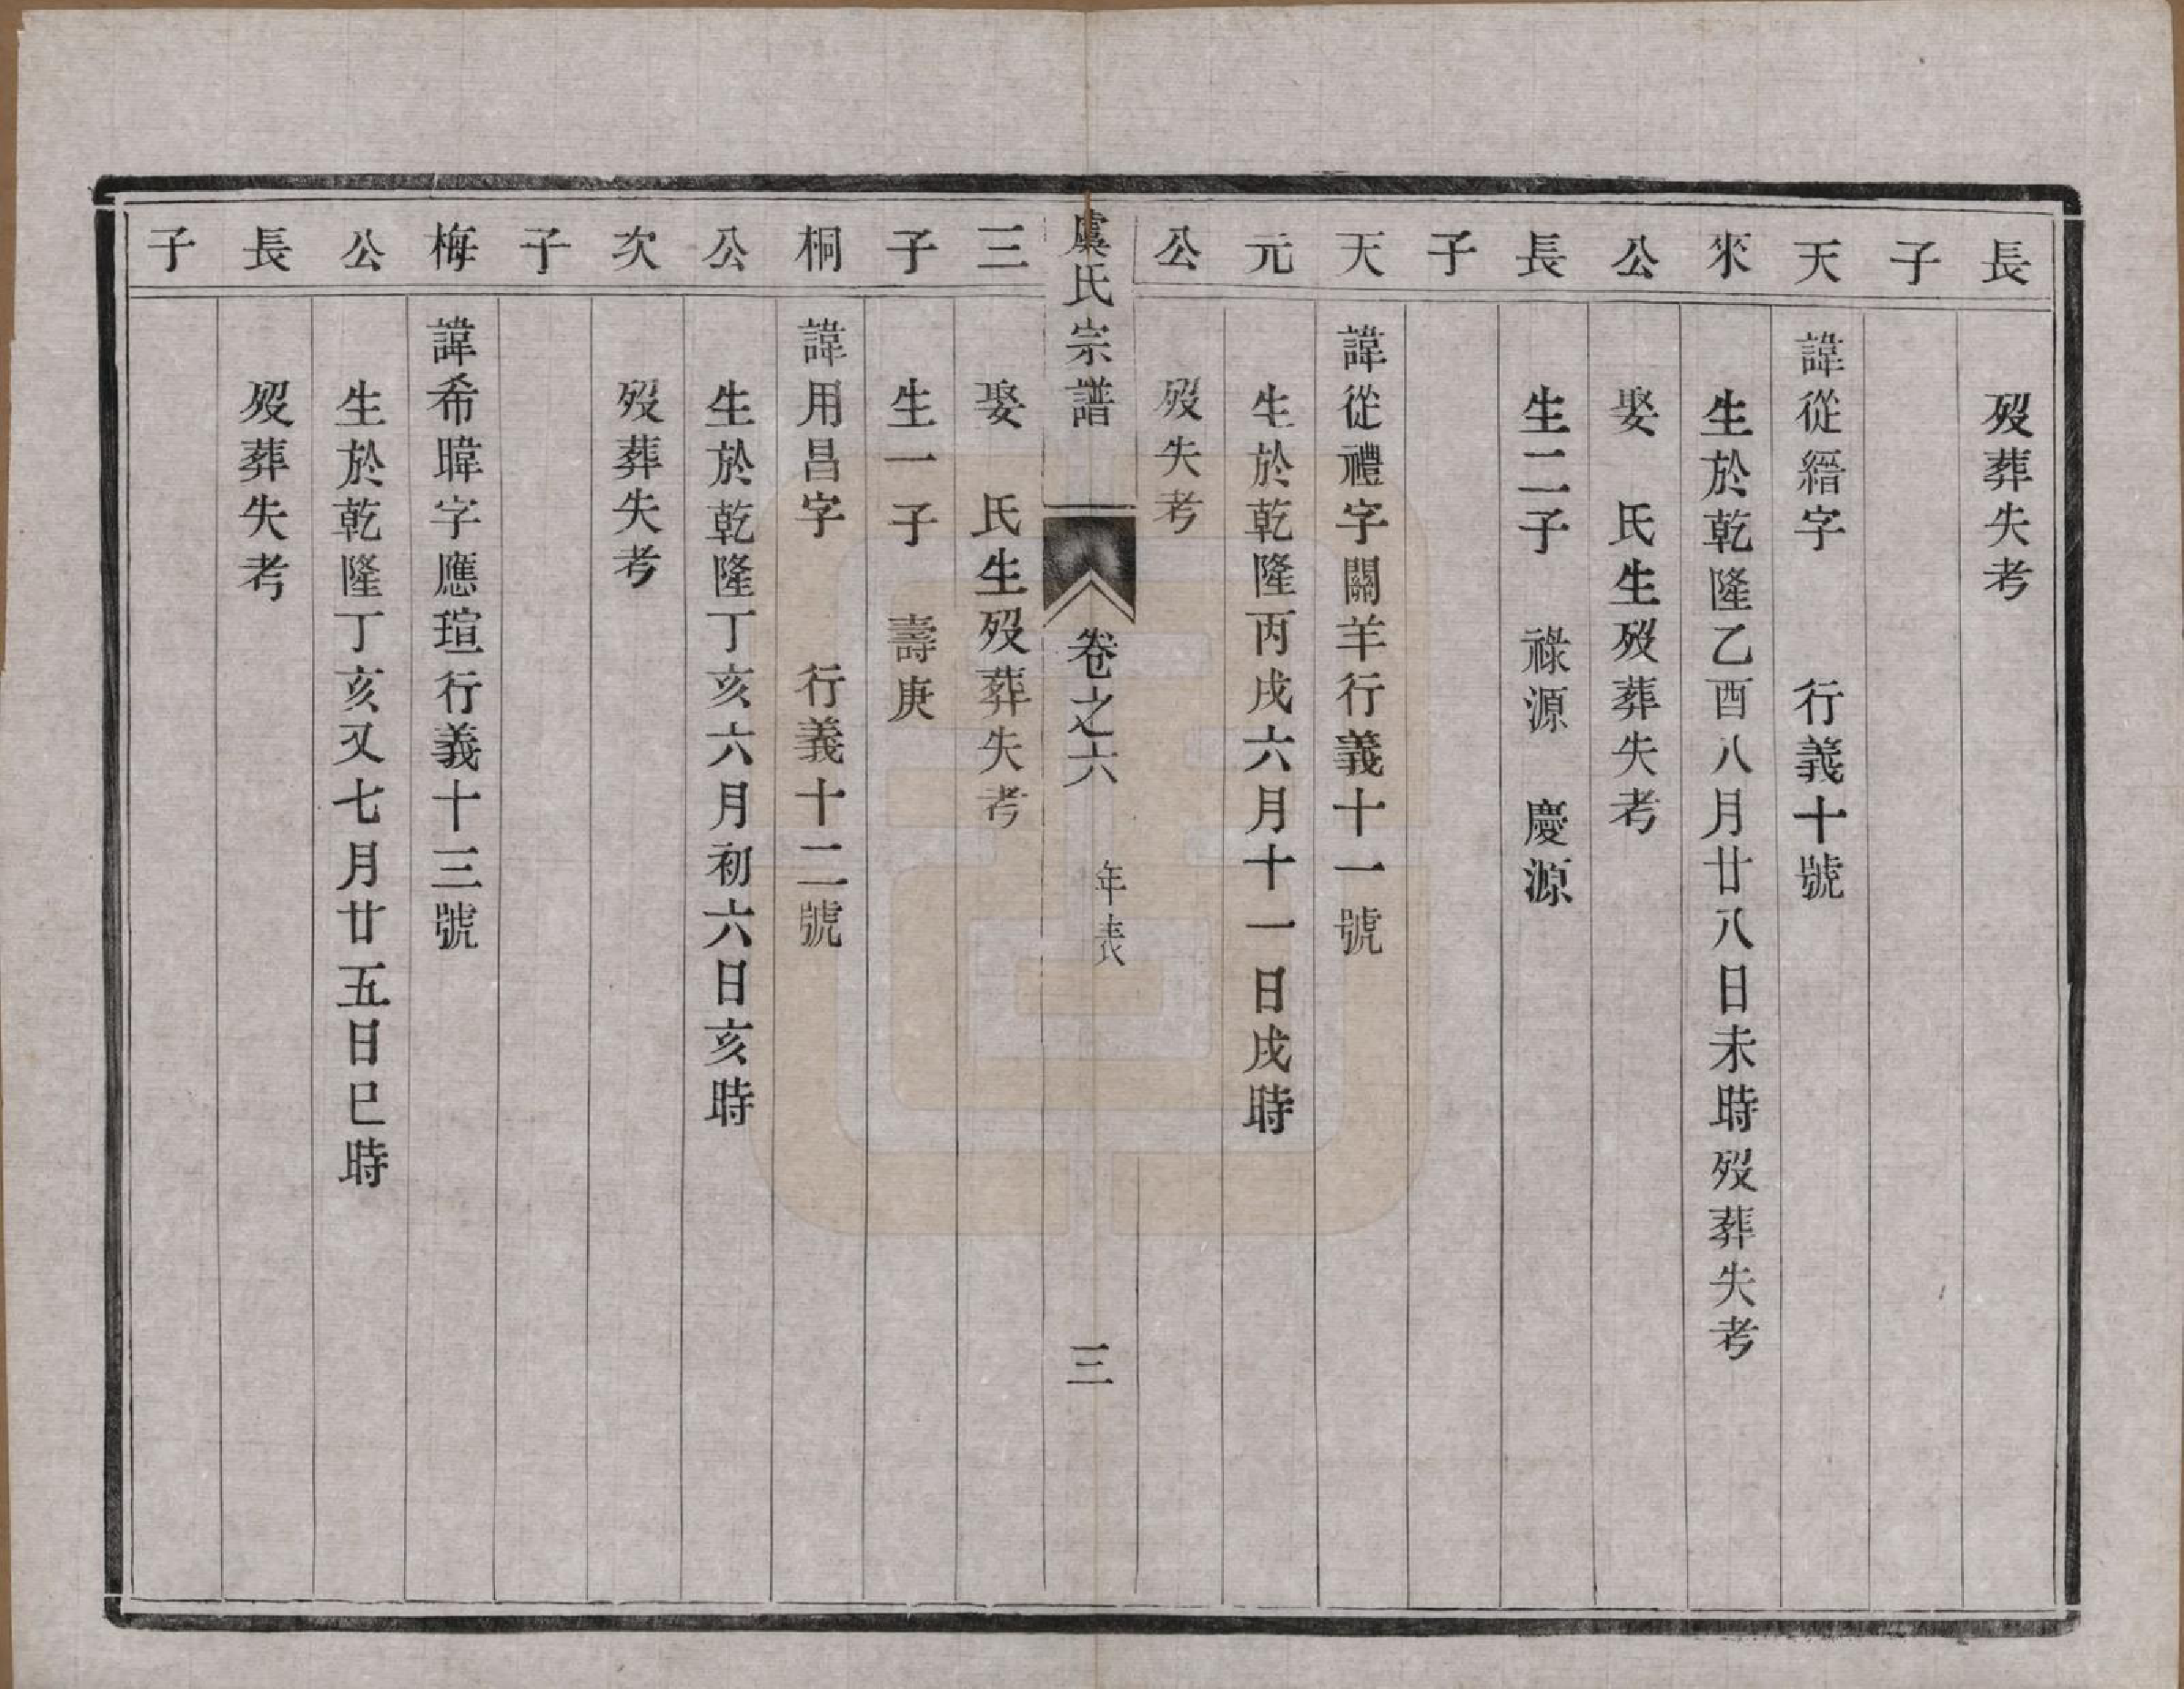 長 歿葬失考
子
天 諱從縉字 行義十號
來 生於乾隆乙酉八月廿八日未時歿葬失考
公 娶 氏生歿葬失考
長 生二子 祿源 慶源
子
天 諱從禮字關羊行義十一號
元 生於乾隆丙戌六月十一日戌時
公 歿失考
虞氏宗譜 卷之六 年表 三
三 娶 氏生歿葬失考
子 生一子 壽庚
桐 諱用昌字 行義十二號
公 生於乾隆丁亥六月初六日亥時
次 歿葬失考
子
梅 諱希暐字應瑄行義十三號
公 生於乾隆丁亥又七月廿五日巳時
長 歿葬失考
子